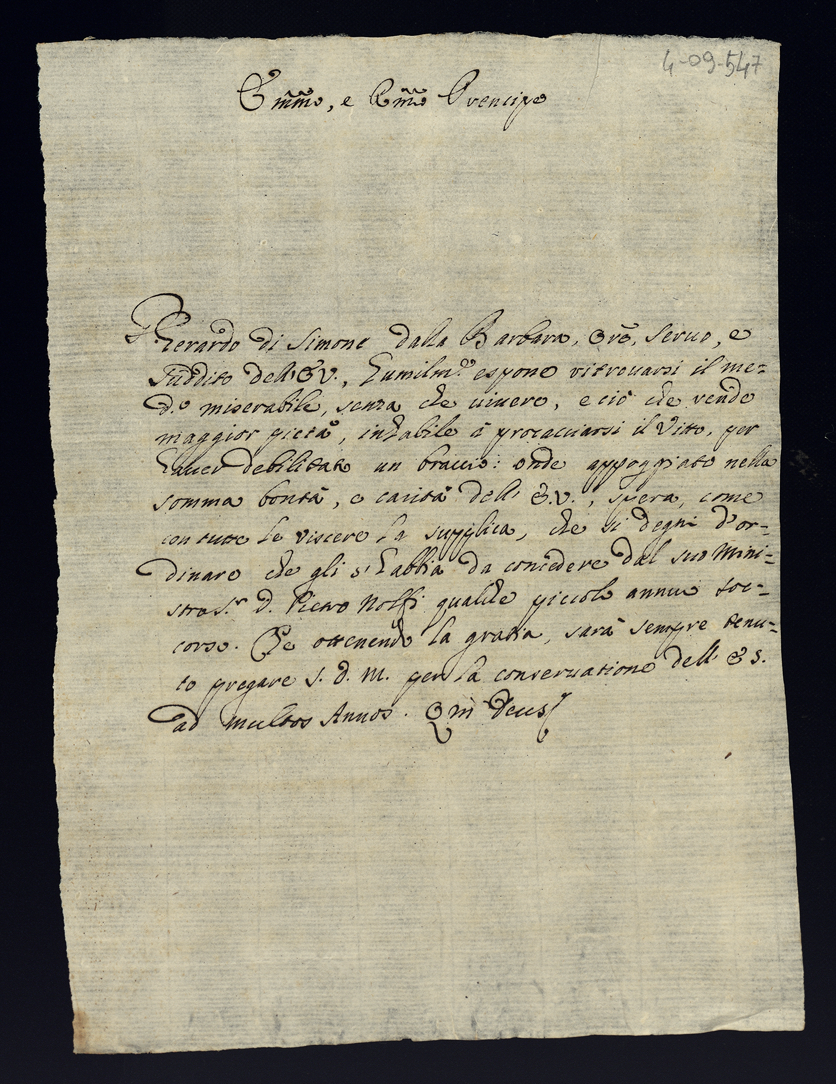 4-09-547
Emm̃o, e Rm̃o Prencipe
Gherardo di Simone dalla Barbara, Orẽ, Servo, e
Suddito dell'E.V., humilm.e espone ritrovarsi il me-
d.o miserabile, senza che vivere, e ciò che rende
maggior pietà, inhabile à procacciarsi il Vito, per
haver debilitato un braccio: onde appoggiato nella
somma bontà, e carità dell' E.V., spera, come
con tutte le viscere la supplica, che si degni d'or-
dinare che gli s'habbia da concedere dal suo Mini-
stro S.r D. Pietro Nolfi qualche piccolo annuo soc-
corso. Che ottenendo la gratia, sarà sempre tenu-
to pregare S. D. M. per la conservatione dell' E S.
ad multos Annos. Qm̃ Deus